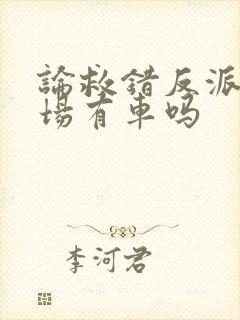 論救錯反派
場有車吗
李河君